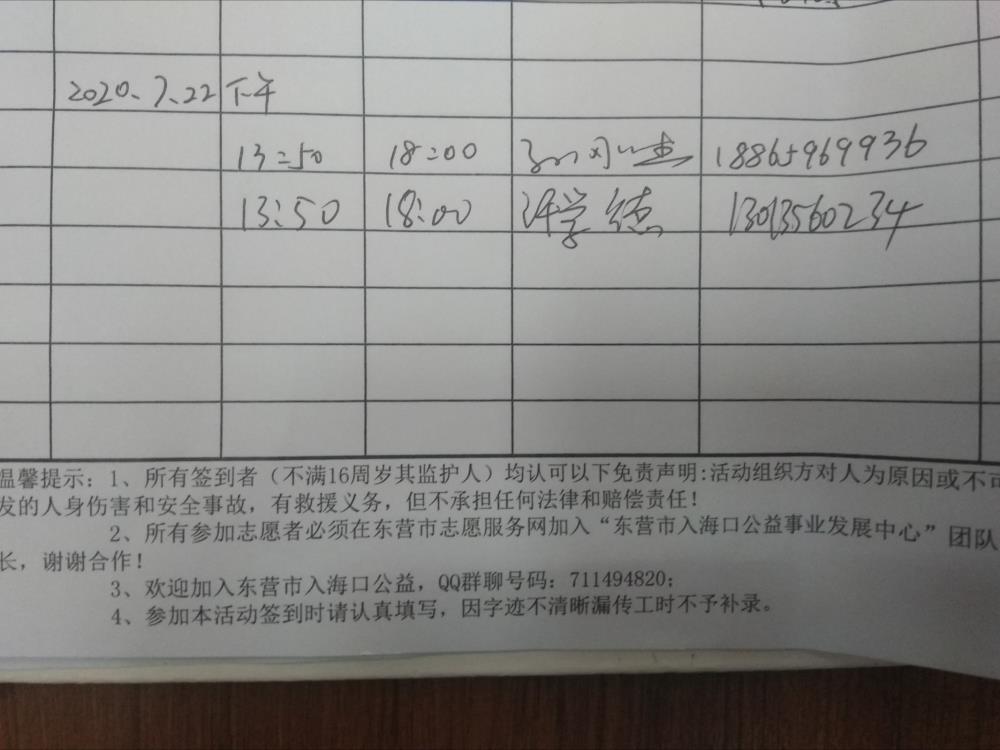 2020.7.22 下午
13:50 18:00 18865969936
13:50 18:00 许学德 13013560234
温馨提示：1、所有签到者（不满16周岁其监护人）均认可以下免责声明:活动组织方对人为原因或不可
发的人身伤害和安全事故，有救援义务，但不承担任何法律和赔偿责任！
2、所有参加志愿者必须在东营市志愿服务网加入“东营市入海口公益事业发展中心”团队
长，谢谢合作！
3、欢迎加入东营市入海口公益，QQ群聊号码：711494820；
4、参加本活动签到时请认真填写，因字迹不清晰漏传工时不予补录。